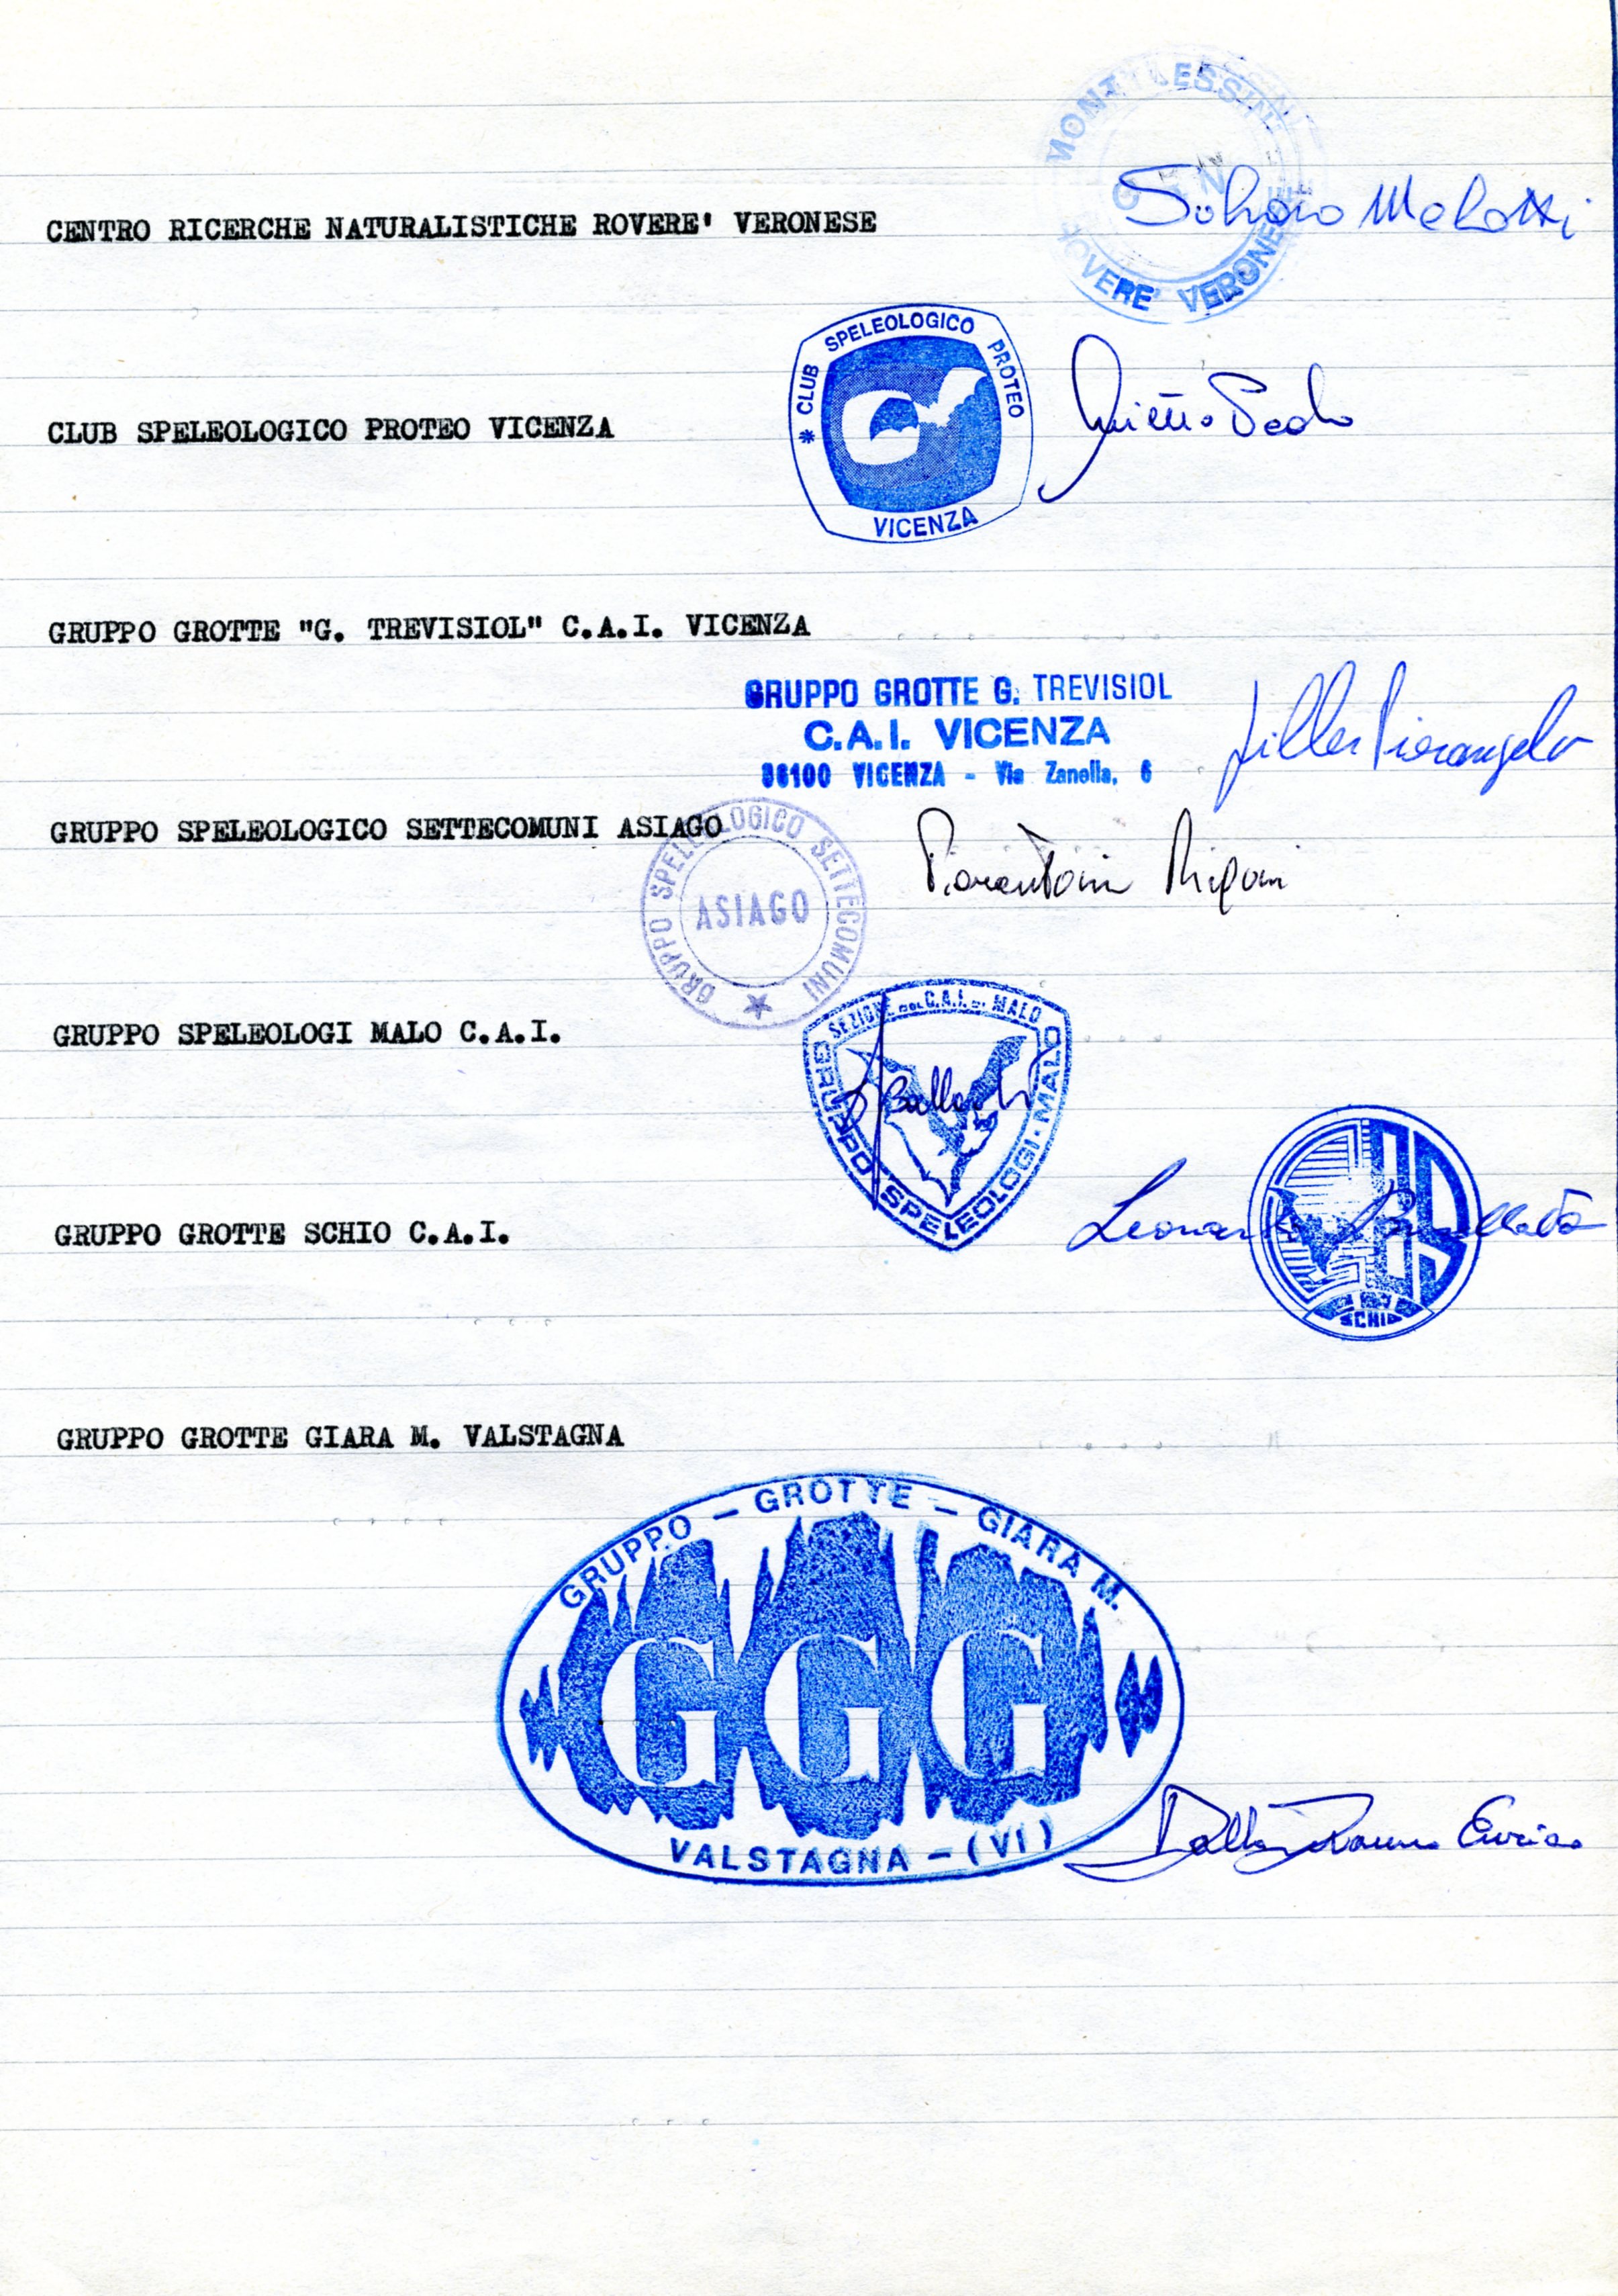 MONTI LESSINI
ROVERE' VERONESE
CENTRO RICERCHE NATURALISTICHE ROVERE' VERONESE
Melotti
* CLUB SPELEOLOGICO PROTEO
VICENZA
CLUB SPELEOLOGICO PROTEO VICENZA
GRUPPO GROTTE "G. TREVISIOL" C.A.I. VICENZA
GRUPPO GROTTE G. TREVISIOL
C.A.I. VICENZA
36100 VICENZA - Via Zanella, 6
Pierangelo
GRUPPO SPELEOLOGICO SETTECOMUNI ASIAGO
GRUPPO SPELEOLOGICO SETTECOMUNI
ASIAGO
Rigoni
GRUPPO SPELEOLOGI MALO C.A.I.
SEZIONE DEL C.A.I. DI MALO
GRUPPO SPELEOLOGI · MALO
GRUPPO GROTTE SCHIO C.A.I.
Leonardo
SCHIO
GRUPPO GROTTE GIARA M. VALSTAGNA
GRUPPO - GROTTE - GIARA M.
GGG
VALSTAGNA - (VI)